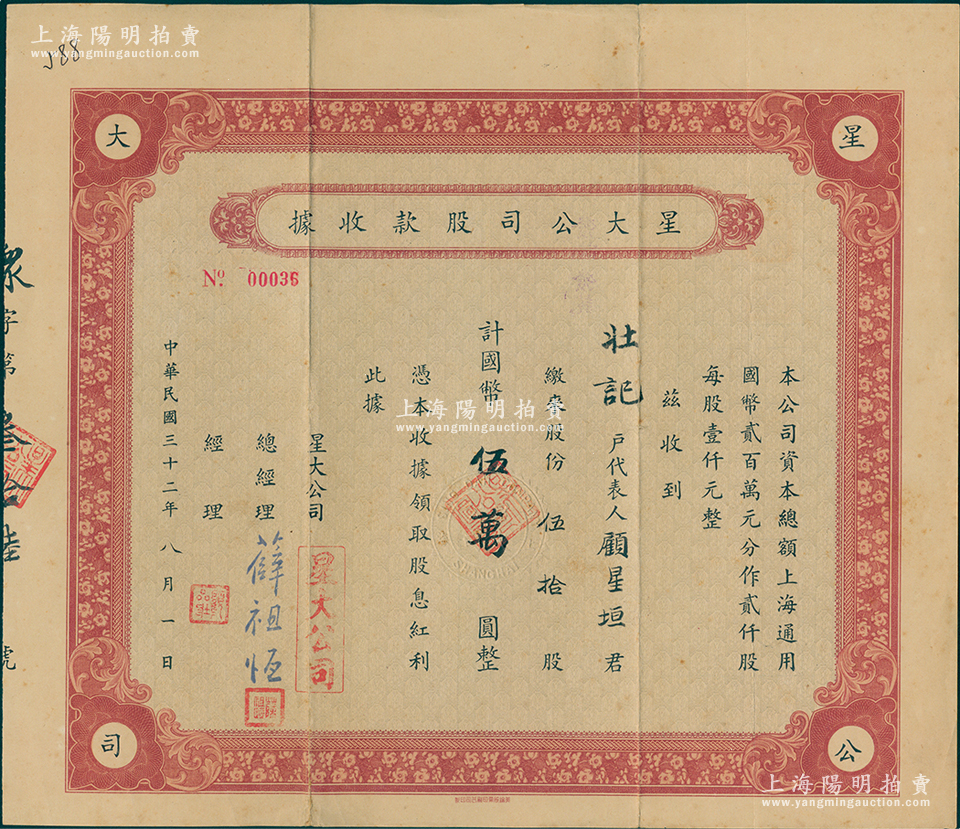 上海陽明拍賣
www.yangmingauction.com
J88
星
大
公
司
星大公司股款收據
No. 00036
本公司資本總額上海通用
國幣貳百萬元分作貳仟股
每股壹仟元整
茲收到
壯記戶代表人顧星垣君
繳來股份伍拾股
計國幣伍萬圓整
憑本收據領取股息紅利
此據
星大公司
總經理 薛祖恆
經理
中華民國三十二年八月一日
星大公司
SHANGHAI
上海陽明拍賣
www.yangmingauction.com
字第叁拾陸號
上海陽明拍賣
www.yangmingauction.com